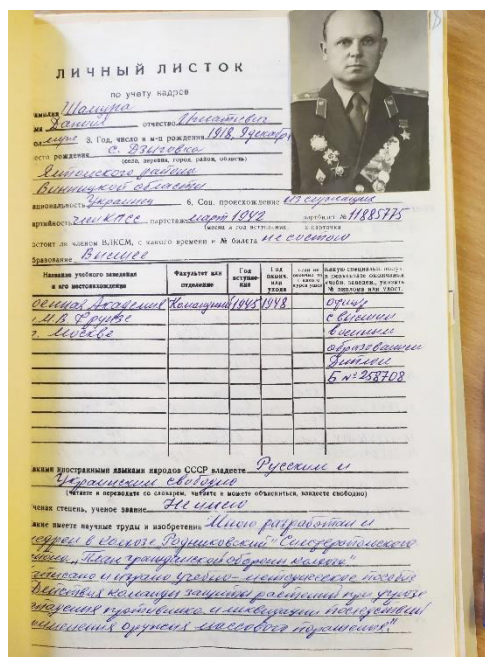 8
ЛИЧНЫЙ ЛИСТОК
по учету кадров
амилия Шамура
мя Данил отчество Игнатьевич
ол муж 3. Год, число и м-ц рождения 1918, 9 декабря
есто рождения с. Дзыговка
(село, деревня, город, район, область)
Ямпольского района
Винницкой области
ациональность Украинец 6. Соц. происхождение из служащих
артийность член КПСС партстаж март 1942 партбилет № 11885775
(месяц и год вступления) и карточка
остоит ли членом ВЛКСМ, с какого времени и № билета не состою
бразование Высшее
Название учебного заведения и его местонахождение Факультет или отделение Год вступления Год окончания или ухода Если не окончил, то с какого курса ушел Какую специальность получил в результате окончания учебн. заведен., указать № диплома или удост.
оенная Академия Командный 1945 1948 офицер
м. М.В. Фрунзе с высшим
г. Москва военным
образованием
Диплом
Б № 258708
акими иностранными языками народов СССР владеете Русским и
Украинским свободно
(читаете и переводите со словарем, читаете и можете объясниться, владеете свободно)
ченая степень, ученое звание Не имею
акие имеете научные труды и изобретения Мною разработан и
в колхозе "Родниковский" Симферопольского
"План гражданской обороны колхоза"
написано и издано учебно-методическое пособие
Действия команды защиты растений при угрозе
нападения противника и ликвидации последствий
применения оружия массового поражения".